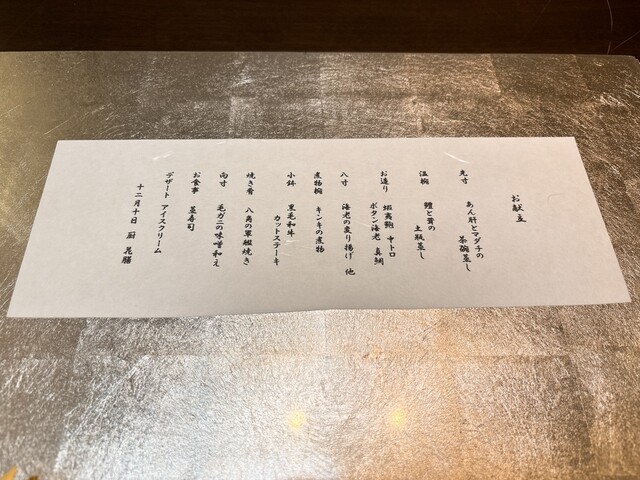 お献立
先寸 あん肝とマダチの
茶碗蒸し
温椀 鱧と茸の
土瓶蒸し
お造り 蝦夷鮑 中トロ
ボタン海老 真鯛
八寸 海老の変り揚げ 他
煮物椀 キンキの煮物
小鉢 黒毛和牛
カットステーキ
焼き肴 八角の軍艦焼き
向寸 毛ガニの味噌和え
お食事 蒸寿司
デザート アイスクリーム
十二月十日 厨